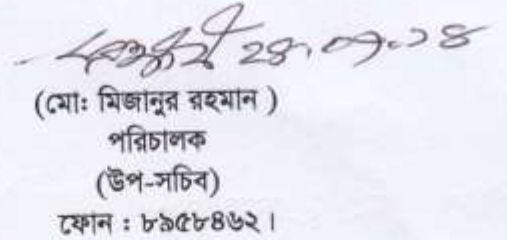 (মোঃ মিজানুর রহমান )
পরিচালক
(উপ-সচিব)
ফোন : ৮৯৫৮৪৬২।